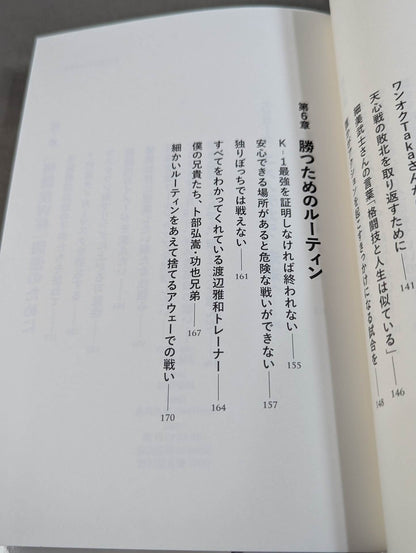 ワンオクTakaさんが
天心戦の敗北を取り返すために――141
細美武士さんの言葉「格闘技と人生は似ている」――146
クションを起こすきっかけになる試合を――148
第6章 勝つためのルーティン
K-1最強を証明しなければ終われない――155
安心できる場所があると危険な戦いができない――157
独りぼっちでは戦えない――161
すべてをわかってくれている渡辺雅和トレーナー――164
僕の兄貴たち、卜部弘嵩・功也兄弟――167
細かいルーティンをあえて捨てるアウェーでの戦い――170